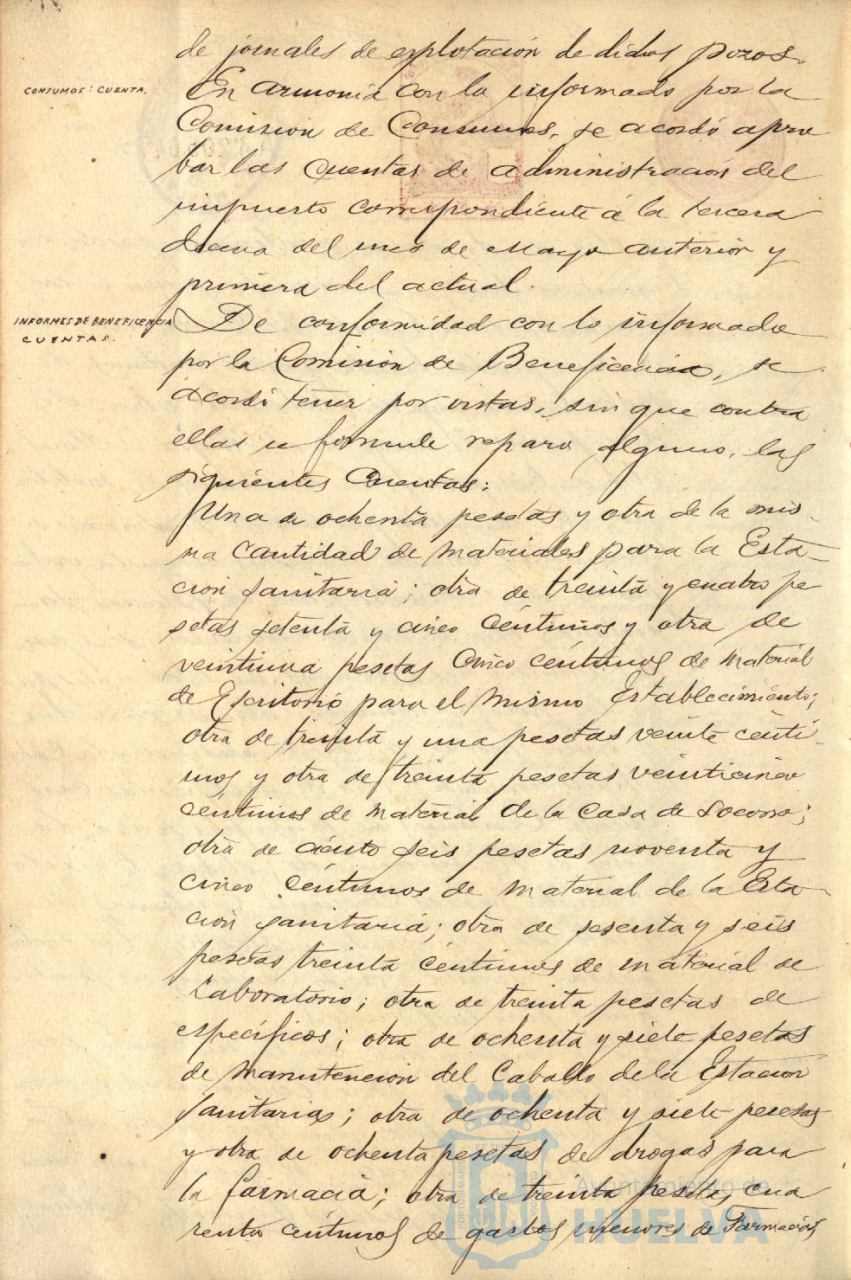 de jornales de explotación de dichos pozos.
CONSUMOS: CUENTA.
En armonia con lo informado por la
Comision de Consumos, se acordó apro
bar las cuentas de administracion del
impuesto correspondiente á la tercera
decena del mes de Mayo anterior y
primera del actual
INFORMES DE BENEFICENCIA
CUENTAS.
De conformidad con lo informado
por la Comision de Beneficencia, se
acordó tener por vistas, sin que contra
ellas se formule reparo alguno, las
siguientes Cuentas:
Una de ochenta pesetas y otra de la mis-
ma cantidad de materiales para la Esta-
cion Sanitaria; otra de treinta y cuatro pe
setas setenta y cinco céntimos y otra de
veintiuna pesetas cinco céntimos de material
de Escritorio para el mismo Establecimiento;
otra de treinta y una pesetas veinte cénti-
mos y otra de treinta pesetas veinticinco
céntimos de material de la Casa de Socorro;
otra de ciento seis pesetas noventa y
cinco céntimos de material de la Esta-
cion Sanitaria; otra de sesenta y seis
pesetas treinta céntimos de material de
Laboratorio; otra de treinta pesetas de
específicos; otra de ochenta y siete pesetas
de manutención del Caballo de la Estacion
Sanitaria; otra de ochenta y siete pesetas
y otra de ochenta pesetas de drogas para
la farmacia; otra de treinta pesetas cua
renta céntimos de gastos menores de Farmacia
Ayuntamiento de
HUELVA